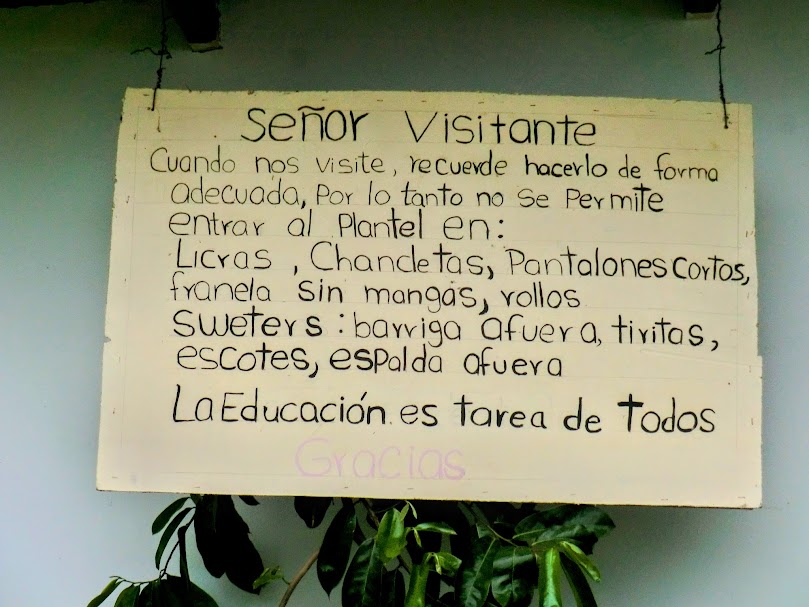 Señor Visitante
Cuando nos visite, recuerde hacerlo de forma
adecuada, Por lo tanto no Se Permite
entrar al Plantel en:
Licras , Chancletas, Pantalones cortos,
franela sin mangas, rollos
Sweters : barriga afuera, tiritas,
escotes, espalda afuera
La Educación es tarea de Todos
Gracias